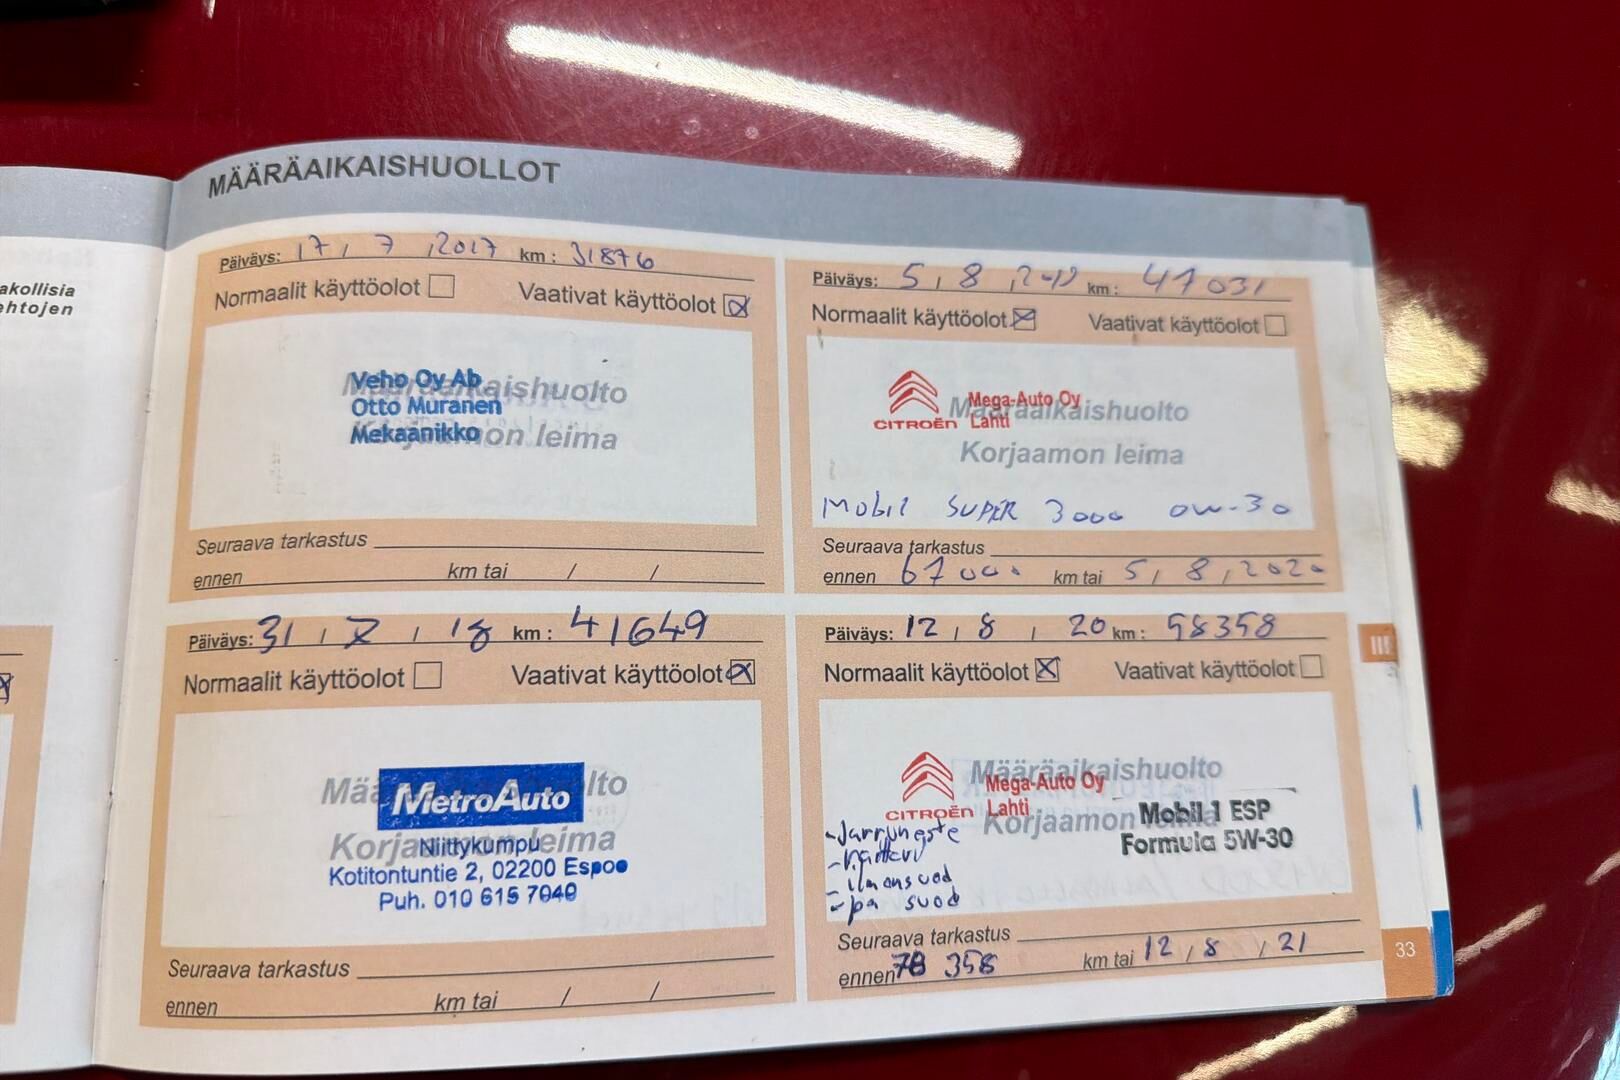 MÄÄRÄAIKAISHUOLLOT
akollisia
ehtojen
Päiväys: 17 / 7 / 2017 km: 31876
Normaalit käyttöolot Vaativat käyttöolot
Määräaikaishuolto
Korjaamon leima
Veho Oy Ab
Otto Muranen
Mekaanikko
Seuraava tarkastus
ennen km tai / /
Päiväys: 31 / 7 / 18 km: 41649
Normaalit käyttöolot Vaativat käyttöolot
Määräaikaishuolto
Korjaamon leima
MetroAuto
Niittykumpu
Kotitontuntie 2, 02200 Espoo
Puh. 010 615 7040
Seuraava tarkastus
ennen km tai / /
Päiväys: 5 / 8 / km: 47031
Normaalit käyttöolot Vaativat käyttöolot
Määräaikaishuolto
Korjaamon leima
CITROËN
Mega-Auto Oy
Lahti
Mobil SUPER 3000 0W-30
Seuraava tarkastus
ennen 67000 km tai 5 / 8 / 2020
Päiväys: 12 / 8 / 20 km: 58358
Normaalit käyttöolot Vaativat käyttöolot
Määräaikaishuolto
Korjaamon leima
CITROËN
Mega-Auto Oy
Lahti
Mobil 1 ESP
Formula 5W-30
- Jarruneste
- ilmansuod
- pa suod
Seuraava tarkastus
ennen 78 358 km tai 12 / 8 / 21
III
33